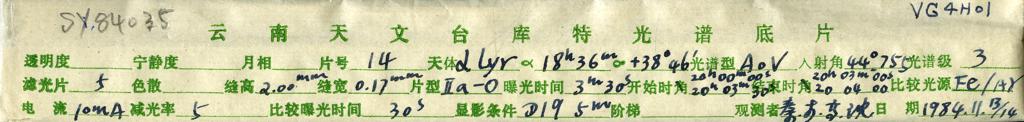 SY.84035 VG4H01
云南天文台库特光谱底片
透明度 宁静度 月相 片号 14 天体 α Lyr α 18h36m δ +38°46′ 光谱型 A0V 入射角 44°755 光谱级 3
滤光片 5 色散 缝高 2.00mm 缝宽 0.17mm 片型 IIa-O 曝光时间 3m30s 开始时角 20h00m00s 20h03m30s 结束时角 20h03m00s 20 04 00 比较光源 Fe/Ar
电流 10mA 减光率 5 比较曝光时间 30s 显影条件 D19 5m 阶梯 观测者 日期 1984.11.13/14